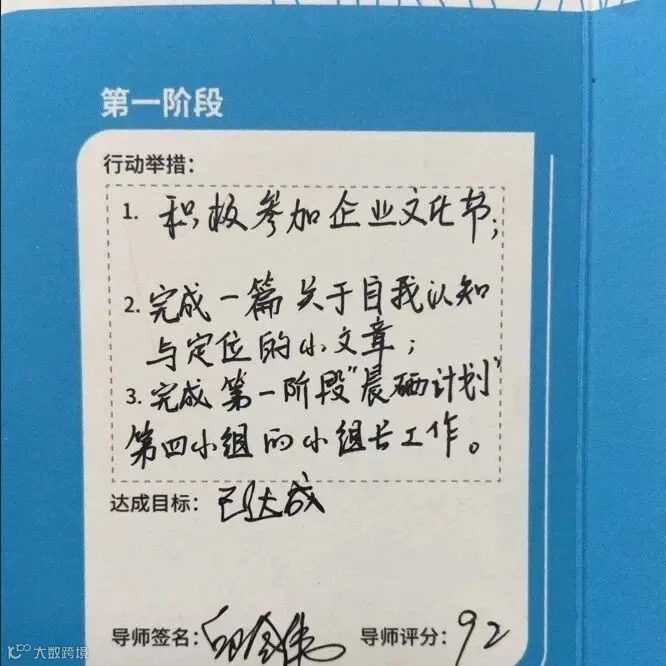 第一阶段
行动举措:
1. 积极参加企业文化节;
2. 完成一篇关于自我认知
与定位的小文章;
3. 完成第一阶段“晨硒计划”
第四小组的小组长工作。
达成目标: 已达成
导师签名: 导师评分: 92
大数跨境